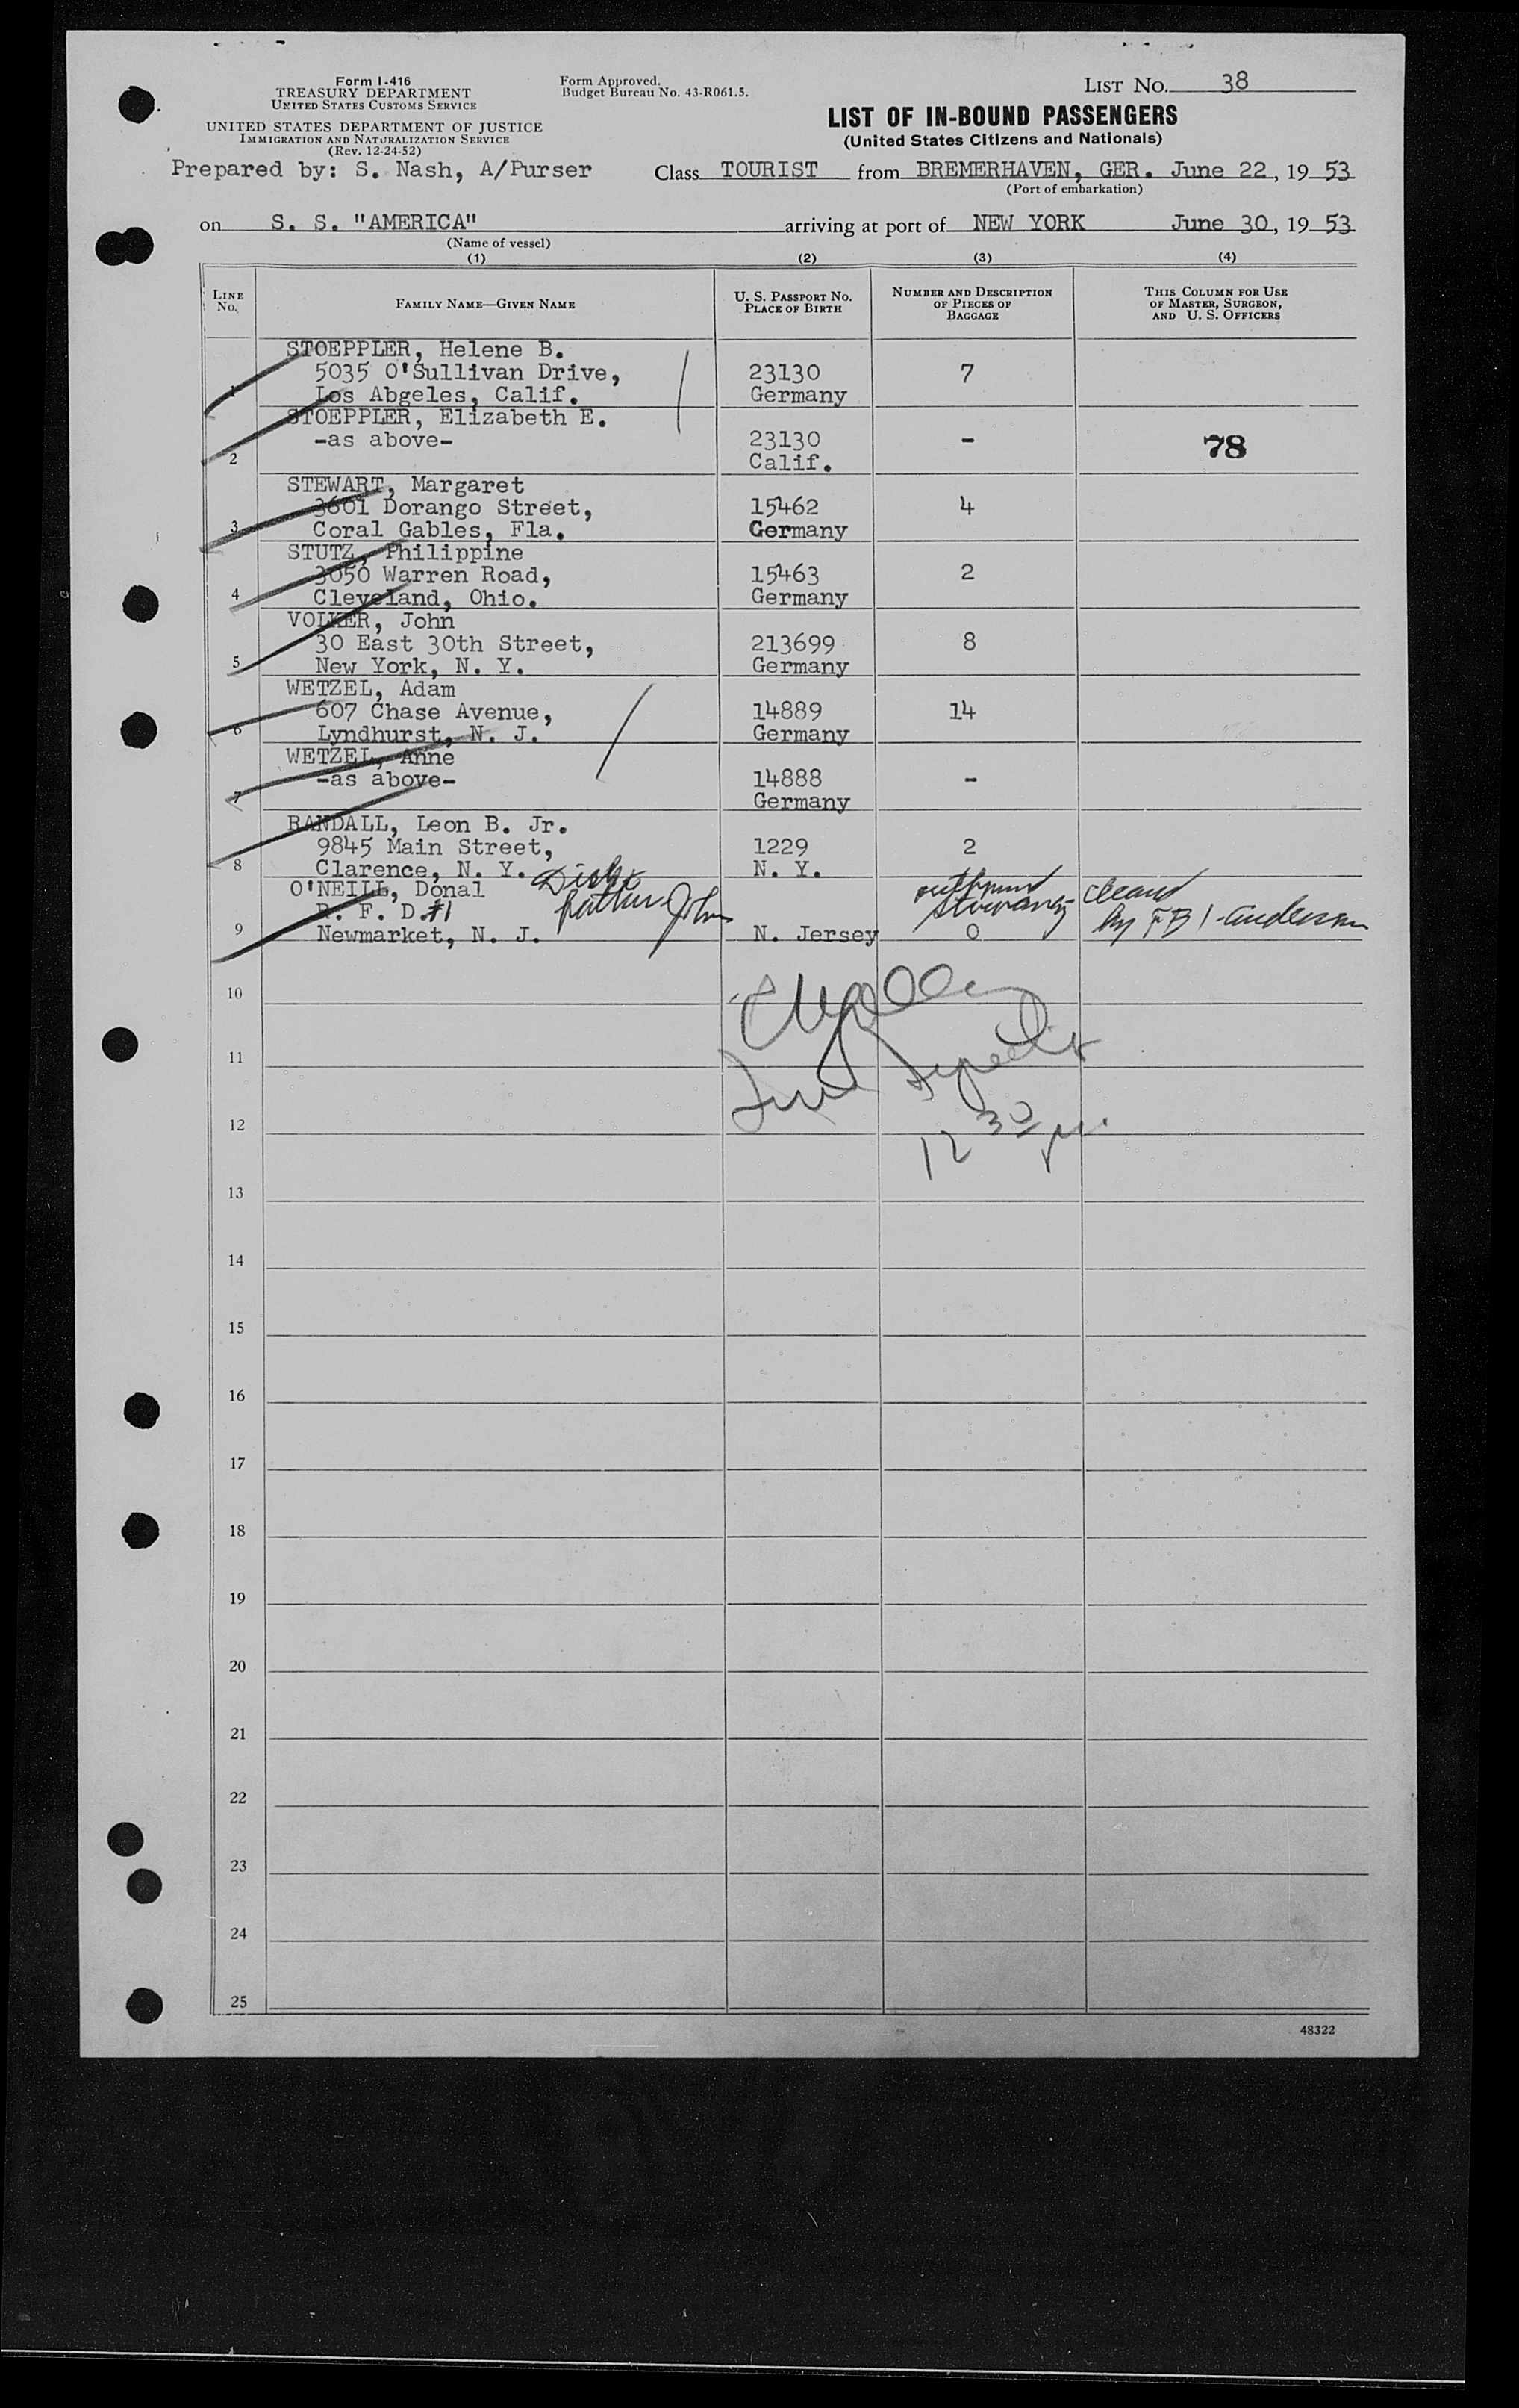 Form I-416
TREASURY DEPARTMENT
UNITED STATES CUSTOMS SERVICE
UNITED STATES DEPARTMENT OF JUSTICE
IMMIGRATION AND NATURALIZATION SERVICE
(Rev. 12-24-52)
Form Approved.
Budget Bureau No. 43-R061.5.
LIST NO. 38
LIST OF IN-BOUND PASSENGERS
(United States Citizens and Nationals)
Prepared by: S. Nash, A/Purser
Class TOURIST from BREMERHAVEN, GER. June 22, 19 53
(Port of embarkation)
on S. S. "AMERICA" arriving at port of NEW YORK June 30, 19 53
(Name of vessel)
(1) (2) (3) (4)
LINE NO.
FAMILY NAME—GIVEN NAME
U. S. PASSPORT NO.
PLACE OF BIRTH
NUMBER AND DESCRIPTION
OF PIECES OF
BAGGAGE
THIS COLUMN FOR USE
OF MASTER, SURGEON,
AND U. S. OFFICERS
STOEPPLER, Helene B.
1 5035 O'Sullivan Drive, 23130 7
Los Abgeles, Calif. Germany
STOEPPLER, Elizabeth E.
2 -as above- 23130 - 78
Calif.
STEWART, Margaret
3 3601 Dorango Street, 15462 4
Coral Gables, Fla. Germany
STUTZ, Philippine
4 3050 Warren Road, 15463 2
Cleveland, Ohio. Germany
VOLKER, John
5 30 East 30th Street, 213699 8
New York, N. Y. Germany
WETZEL, Adam
6 607 Chase Avenue, 14889 14
Lyndhurst, N. J. Germany
WETZEL, Anne
7 -as above- 14888 -
Germany
RANDALL, Leon B. Jr.
8 9845 Main Street, 1229 2
Clarence, N. Y. N. Y.
O'NEILL, Donal father John outbound stowaway cleared
R. F. D. #1 by FBI-Anderson
9 Newmarket, N. J. N. Jersey 0
10
11
12
12 30 pm.
13
14
15
16
17
18
19
20
21
22
23
24
25
48322